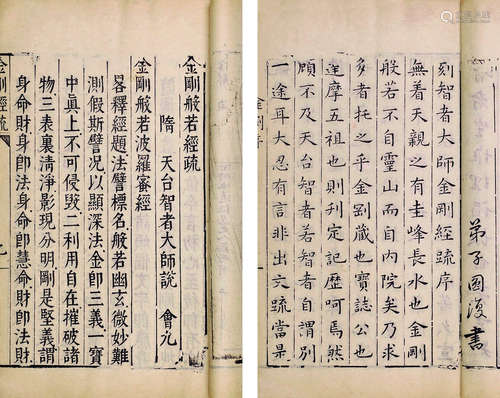 刻智者大師金剛經疏序
無着天親之有圭峰長水也金剛
般若不自靈山而自內院矣乃求
多者托之乎金剛藏也寶誌公也
達摩五祖也則刊定記歷呵焉然
頋不及天台智者若智者自謂別
一途耳大忍有言非出六疏當是
弟子國
書
金剛般若經疏
隋 天台智者大師說 會九
金剛般若波羅蜜經
畧釋經題法譬標名般若幽玄微妙難
測假斯譬況以顯深法金即三義一寶
中真上不可侵毀二利用自在摧破諸
物三表裏淸淨影現分明剛是堅義謂
身命財身即法身命即慧命財即法財
金剛經疏